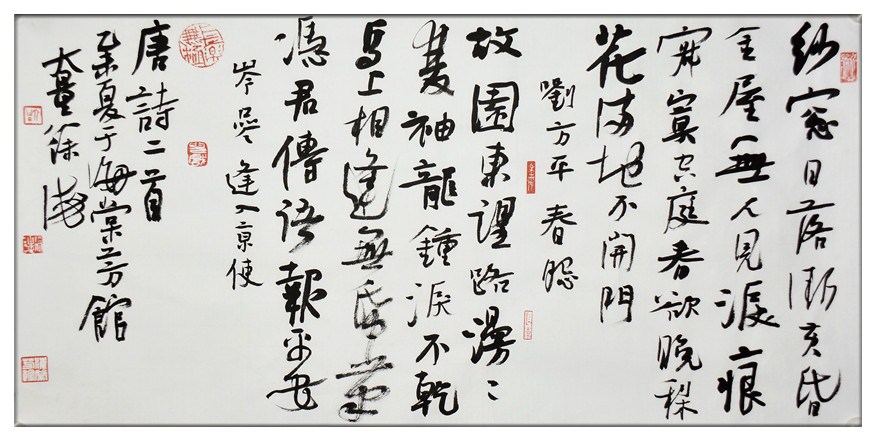 紗窗日落漸黃昏
金屋無人見淚痕
寂寞空庭春欲晚梨
花滿地不開門
劉方平春怨
故園東望路漫々
雙袖龍鍾淚不乾
馬上相逢無紙筆
憑君傳語報平安
岑參逢入京使
唐詩二首
乙未夏于海棠芳館
徐